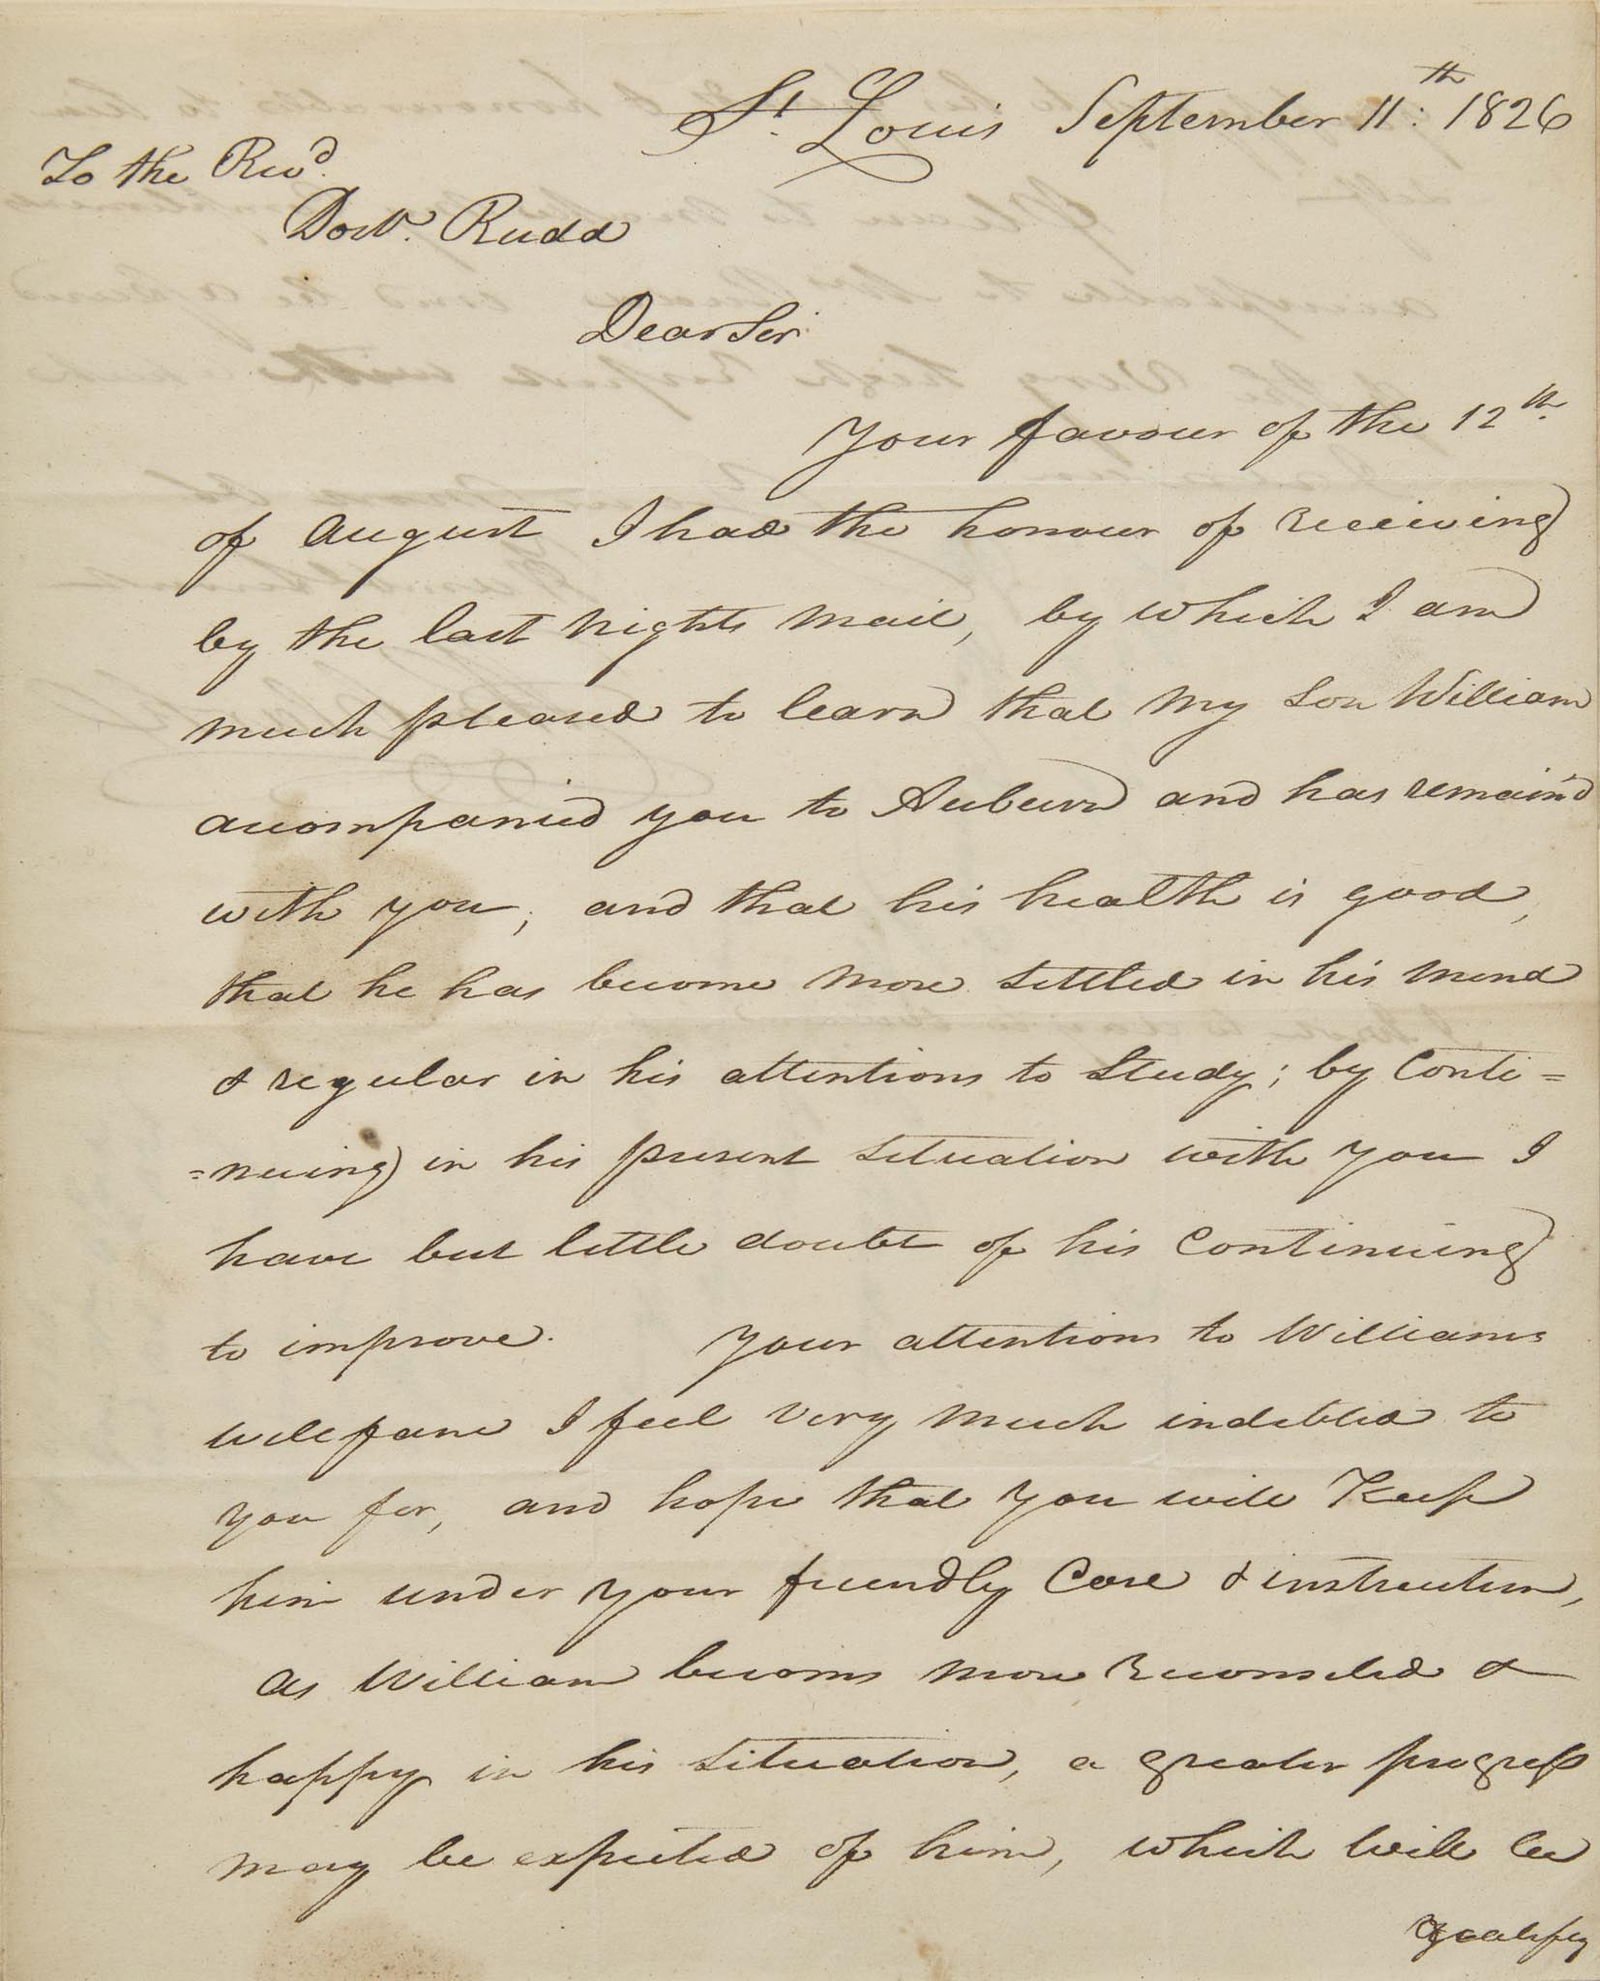 St. Louis September 11:th 1826
To the Revd.
Doctr. Rudd
Dear Sir
Your favour of the 12th.
of August I had the honour of receiving
by the last nights Mail, by which I am
much pleased to learn that my son William
acompanied you to Auburn and has remain'd
with you; and that his health is good,
that he has become more settled in his mind
& regular in his attentions to Study; by Conti=
=nuing in his present situation with you I
have but little doubt of his Continuing
to improve. Your attentions to Williams
wellfare I feel very much indebted to
you for, and hope that you will Keep
him under your friendly Care & instruction,
as William becoms more reconciled &
happy in his situation, a greater progress
may be expected of him, which will be